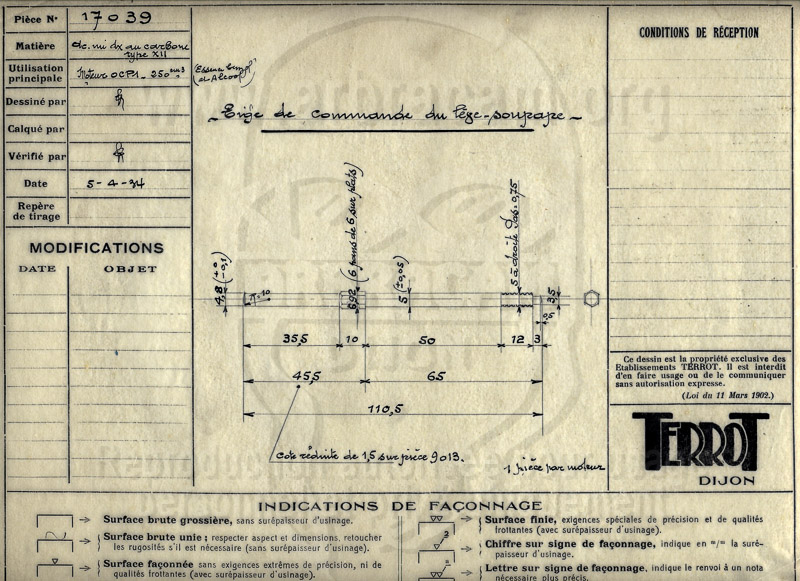 Pièce N° 17039
Matière ac. mi dx au carbone
type XII
Utilisation
principale Moteur OCP1 - 250 cm3
(Essence Compt
et Alcool)
Dessiné par
Calqué par
Vérifié par
Date 5-4-34
Repère
de tirage
MODIFICATIONS
DATE OBJET
Tige de commande du lève-soupape
CONDITIONS DE RÉCEPTION
4,8 (+0 -0,1)
6,92 (6 pans de 6 sur plats)
5 (±0,05)
5 à droite Pas = 0,75
3,5
0,5
35,5 10 50 12 3
45,5 65
110,5
Cote réduite de 1,5 sur pièce 9013.
1 pièce par moteur
Ce dessin est la propriété exclusive des
Etablissements TERROT. Il est interdit
d'en faire usage ou de le communiquer
sans autorisation expresse.
(Loi du 11 Mars 1902.)
TERROT
DIJON
INDICATIONS DE FAÇONNAGE
Surface brute grossière, sans surépaisseur d'usinage.
Surface brute unie ; respecter aspect et dimensions, retoucher
les rugosités s'il est nécessaire (sans surépaisseur d'usinage).
Surface façonnée sans exigences extrêmes de précision, ni de
qualités frottantes (avec surépaisseur d'usinage).
Surface finie, exigences spéciales de précision et de qualités
frottantes (avec surépaisseur d'usinage).
2
Chiffre sur signe de façonnage, indique en m/m la suré-
paisseur d'usinage.
Lettre sur signe de façonnage, indique le renvoi à un nota
nécessaire plus précis.